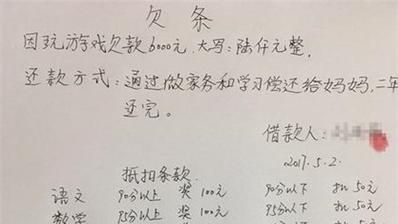 欠条
因玩游戏欠款6000元,大写:陆仟元整.
还款方式:通过做家务和学习偿还给妈妈,二年
还完。
借款人:
2017.5.2.
抵扣条款.
语文 90分以上 奖100元 90分以下 扣50元
数学 95分以上 奖100元 95分以下 扣50元